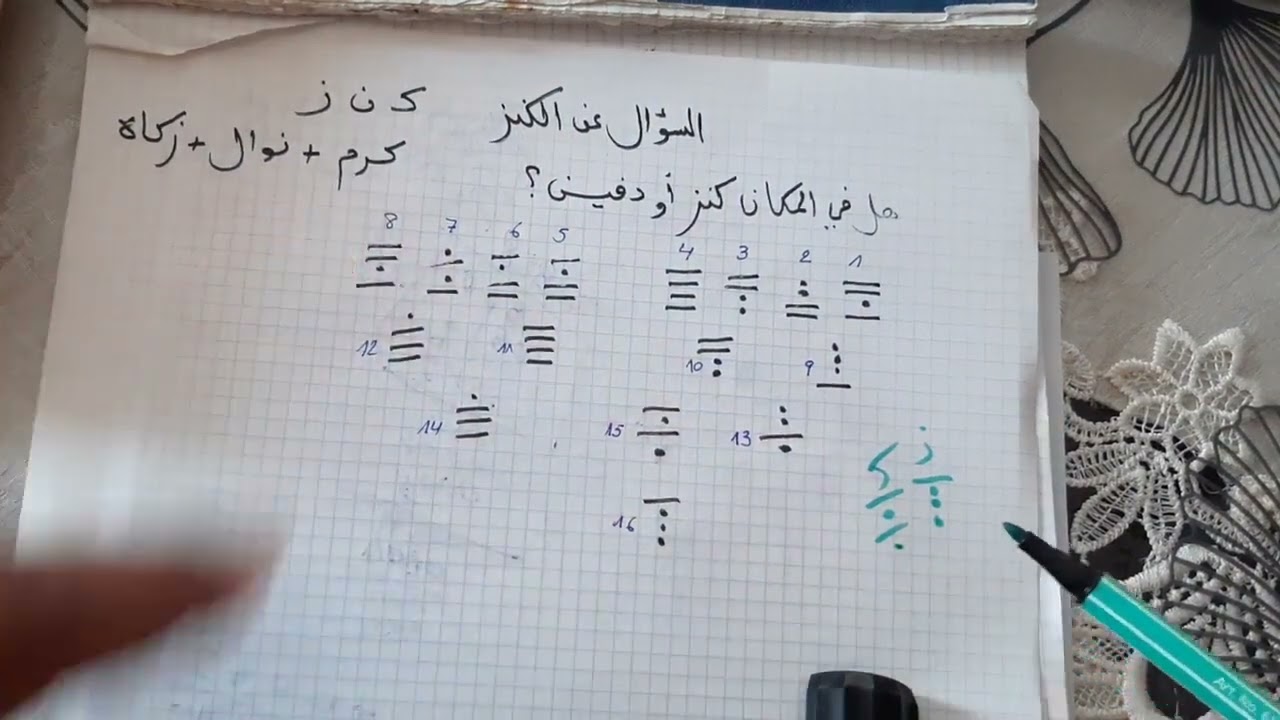 السؤال عن الكنز
ك ن ز
كرم + نوال + زكاة
هل في المكان كنز أو دفين؟
1 2 3 4 5 6 7 8
9 10 11 12
13 15 14
16
ز ك